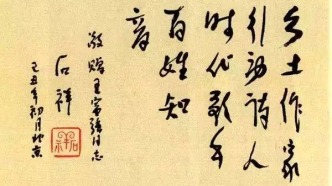 乡土作家
引动诗人
时代歌手
百姓知
音
敬赠王富强同志
石祥
己丑年初月北京